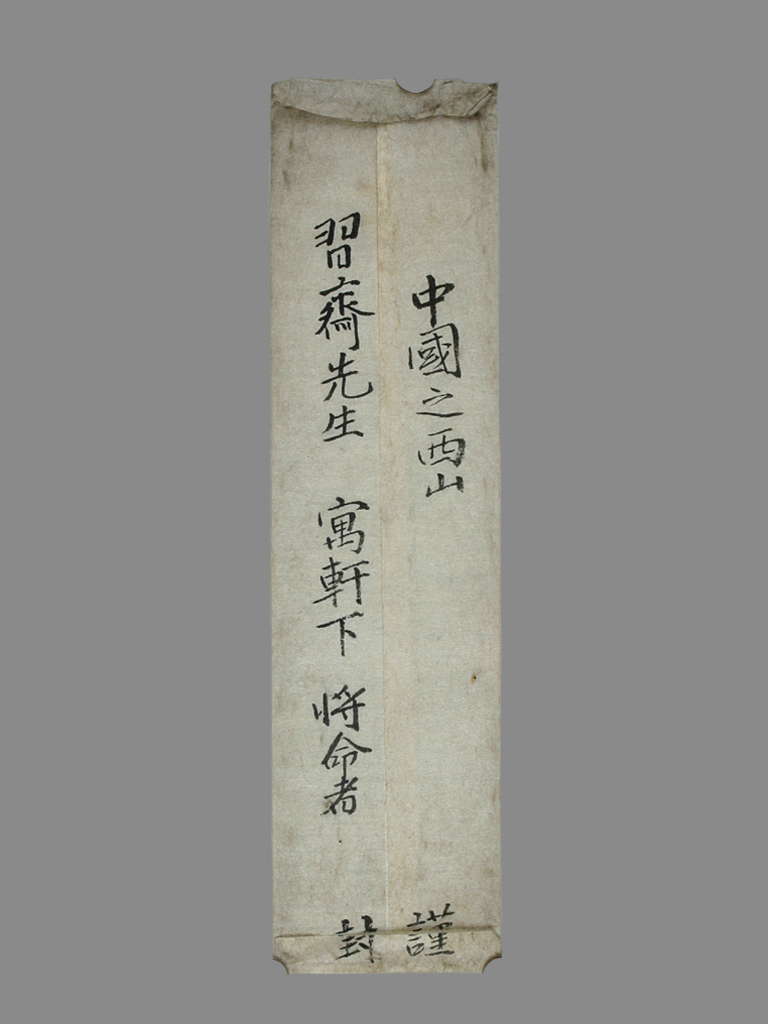 中國之西山
習齋先生 寓軒下 將命者
謹
封